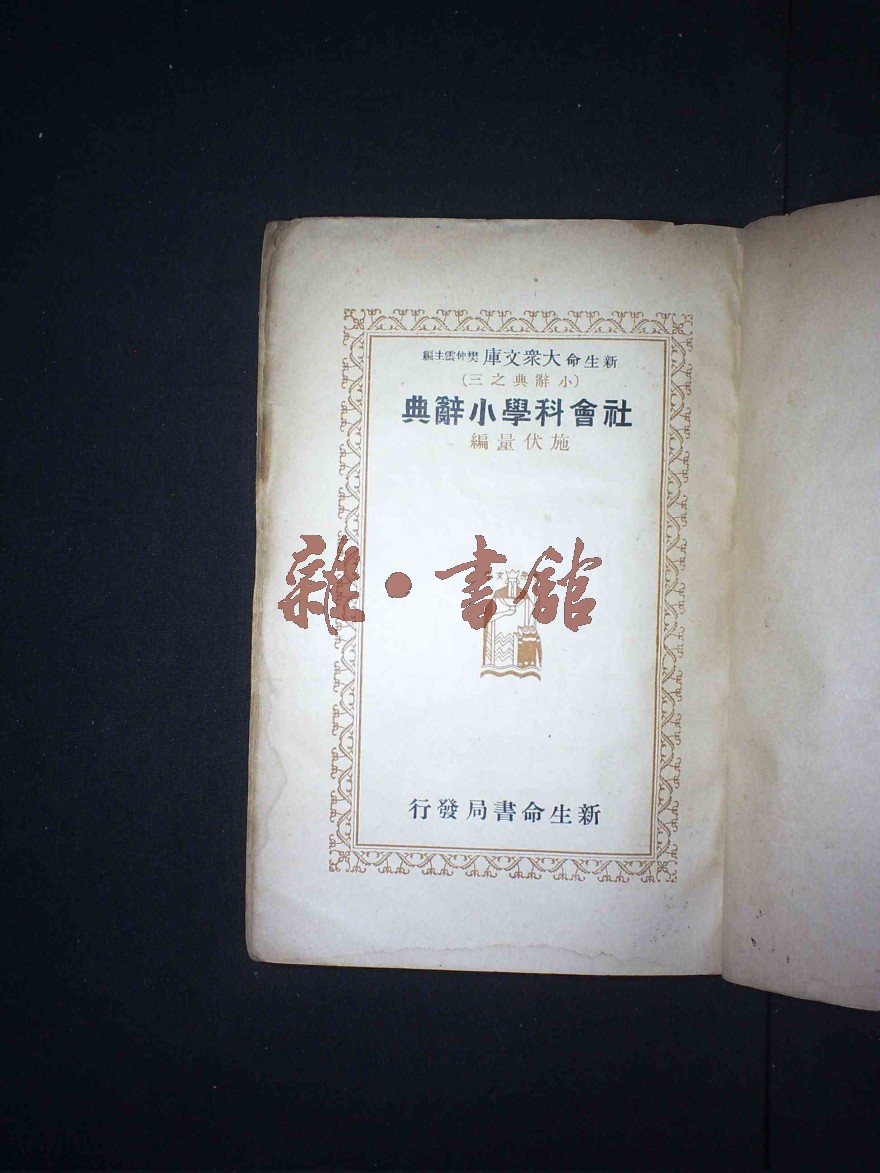 新生命大衆文庫 樊仲雲主編
(小辭典之三)
社會科學小辭典
施伏量編
雜·書館
文
新生命書局發行